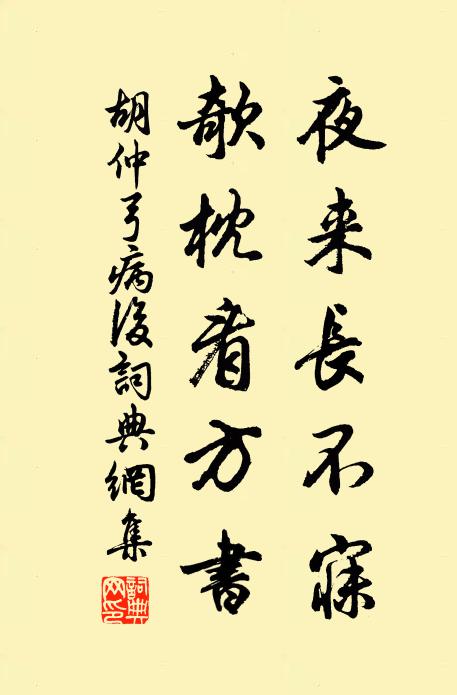 夜来長不寐
欹枕看方書
胡仲弓病後詞典網集
詞典网印